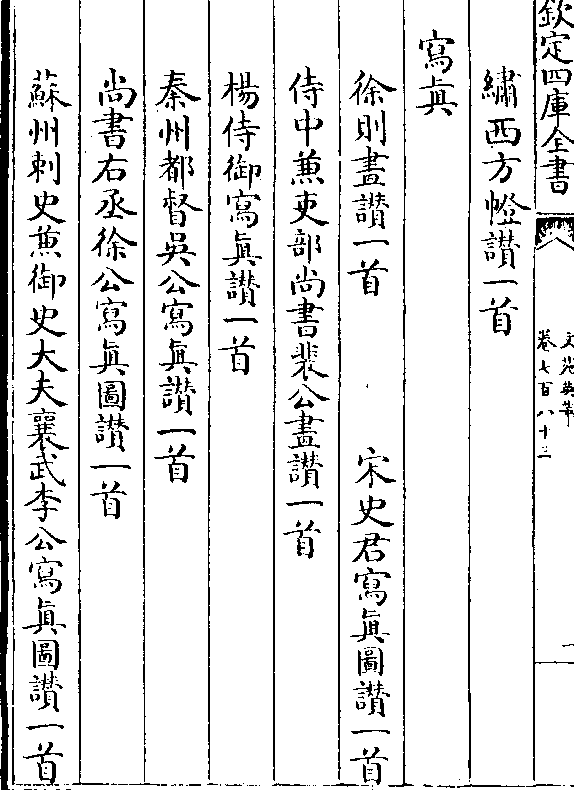 欽定四庫全書
文苑英華
卷七百八十三
一
繡西方㡧讃一首
寫眞
徐則畫讃一首 宋史君寫眞圖讃一首
侍中兼吏部尚書裴公畫讃一首
楊侍御寫眞讃一首
秦州都督吳公寫眞讃一首
尚書右丞徐公寫眞圖讃一首
蘇州刺史兼御史大夫襄武李公寫眞圖讃一首